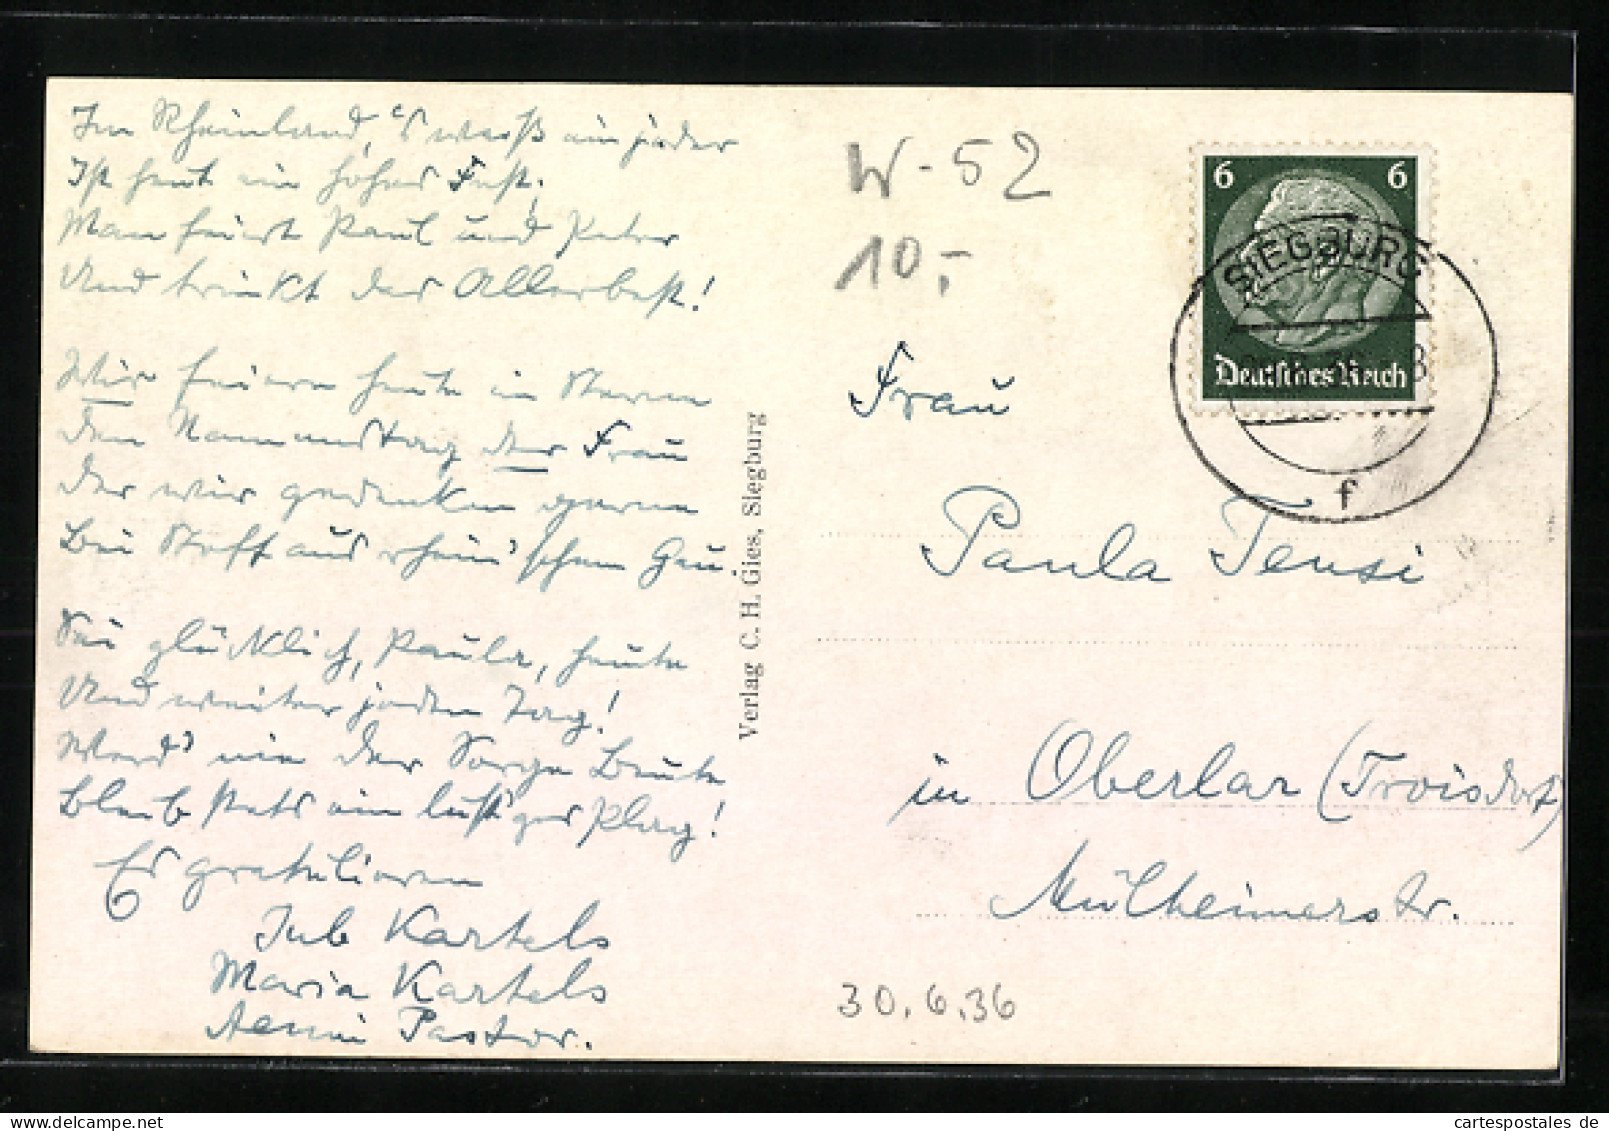 Im Rheinland, 's weiß ein jeder
Ist heut ein hohes Fest;
Man feiert Paul und Peter
Und trinkt das Allerbest!
Wir feiern heute in Stern
Den Namenstag der Frau
Der wir gedenken gerne
Bei Stoff aus rhein'schem Gau.
Sei glücklich, Paula, heute
Und weiter jeden Tag!
Werd' nie der Sorge Beute
Bleib stets ein lust'ger Plag!
Es gratulieren
Jub Kartels
Maria Kartels
Aenni Pastor.
Verlag C. H. Gies, Siegburg
W-52
10,-
6 6
Deutsches Reich
SIEGBURG
f
Frau
Paula Tensi
in Oberlar (Troisdorf)
Mülheimerstr.
30.6.36
cartespostales de